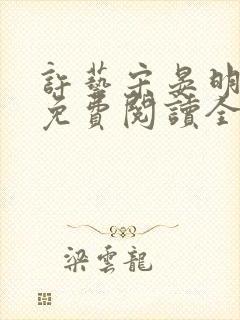 許藝宋晏明
免費閱讀全
梁雲龍